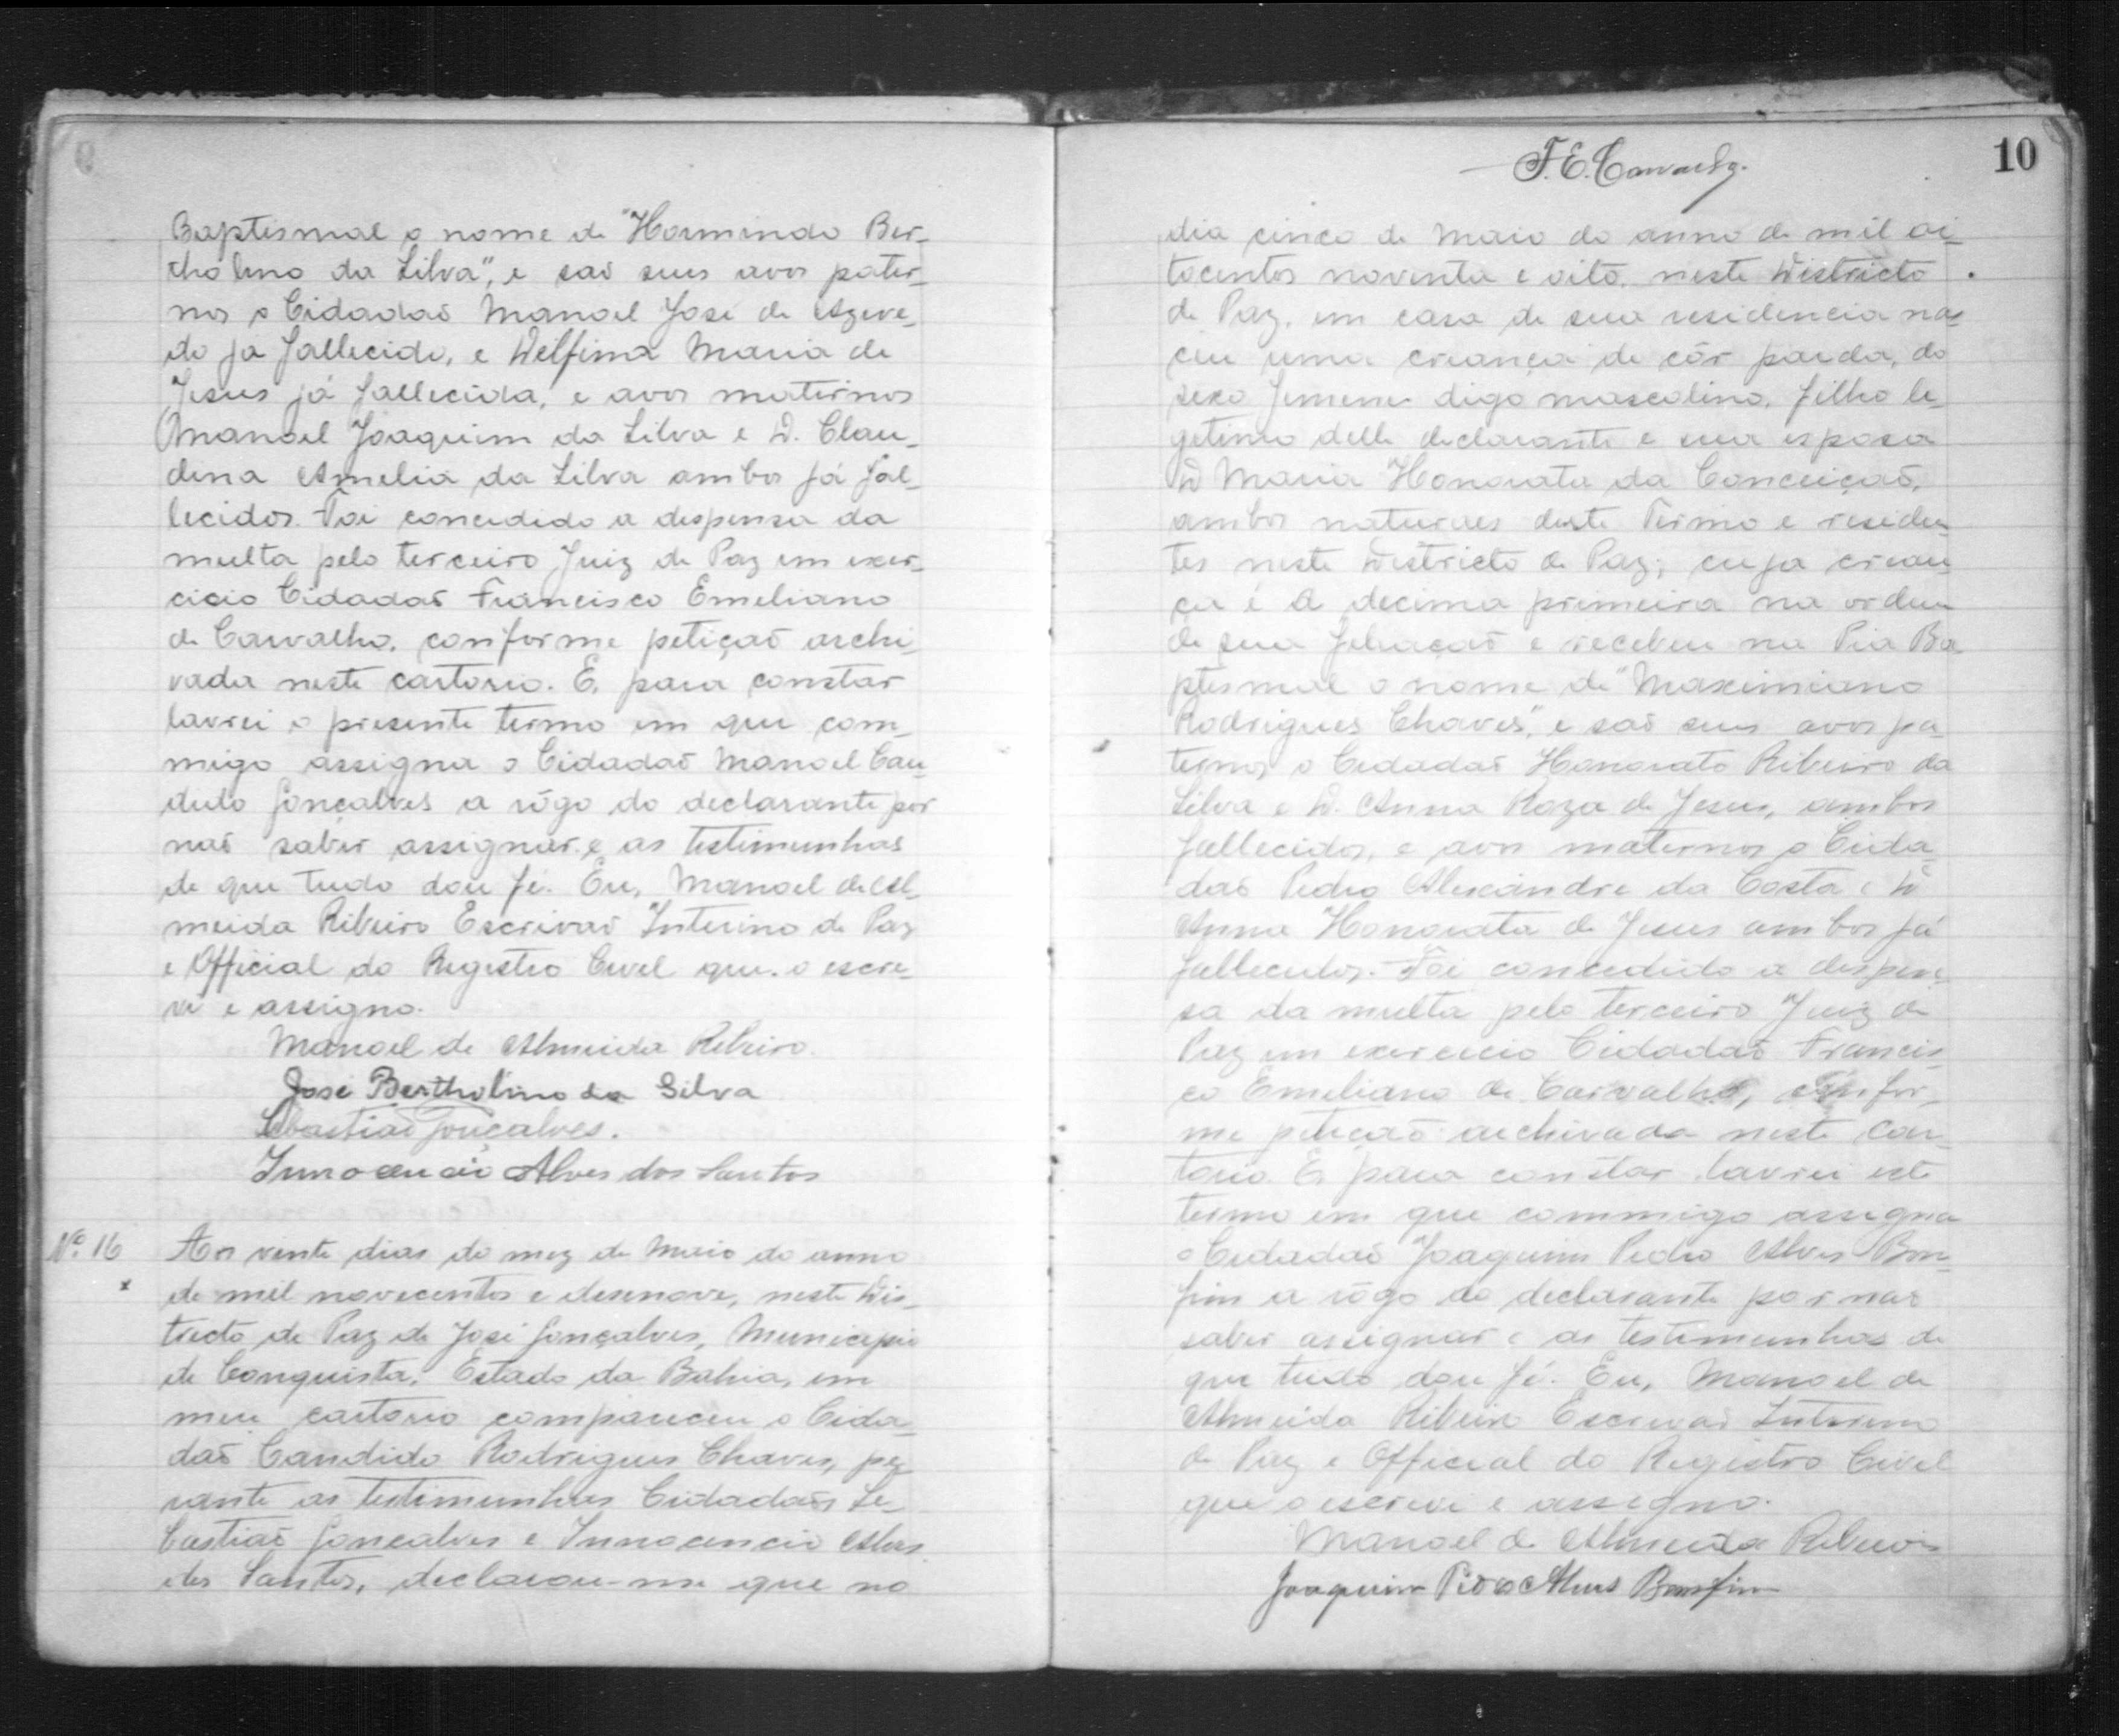 Baptismal o nome de "Hormindo Ber-
tholino da Silva", e saõ seus avos pater-
nos o Cidadaõ Manoel José de Azeve-
do ja fallecido, e Delfina Maria de
Jesus já fallecida, e avos maternos
Manoel Joaquim da Silva e D. Clau-
dina Amelia da Silva ambos já fal-
lecidos. Foi concedido a despensa da
multa pelo terceiro Juiz de Paz em exer-
cicio Cidadaõ Francisco Emeliano
de Carvalho, conforme petiçaõ archi-
vada neste cartorio. E, para constar
lavrei o presente termo em que com-
migo assigna o Cidadaõ Manoel Can-
dido Gonçalves a rôgo do declarante por
naõ saber assignar e as testimunhas
de que tudo dou fé. Eu, Manoel de Al-
meida Ribeiro Escrivaõ Interino de Paz
e Official do Registro Civel que o escre-
vi e assigno.
Manoel de Almeida Ribeiro.
José Bertholino da Silva
Sebastiaõ Gonçalves.
Innocencio Alves dos Santos
Nº 16
Aos vinte dias do mez de Maio do anno
de mil novecentos e desenove, neste Dis-
tricto de Paz de José Gonçalves, Municipio
de Conquista, Estado da Bahia, em
meu cartorio compareceu o Cida-
daõ Candido Rodrigues Chaves, pe-
rante as testimunhas Cidadaõs Se-
bastiaõ Gonçalves e Innocencio Alves
dos Santos, declarou-me que no
F. E. Carvalho.
10
dia cinco de Maio do anno de mil oi-
tocentos noventa e oito, neste Districto
de Paz, em casa de sua residencia nas-
ceu uma criança de côr parda, do
sexo femene digo mascolino, filho le-
getimo delle declarante e sua esposa
D Maria Honorata da Conceiçaõ,
ambos naturaes deste Termo e residen-
tes neste Districto de Paz; cuja crean-
ça é a decima primeira na ordem
de sua feliaçaõ e recebeu na Pia Ba-
ptesmal o nome de "Maximiano
Rodrigues Chaves", e saõ seus avos pa-
ternos o Cedadaõ Honorato Ribeiro da
Silva e D. Anna Roza de Jesus, ambos
fallecidos, e avos maternos o Cida-
daõ Pedro Alexandre da Costa e D
Anna Honorata de Jesus ambos já
fallecidos. Foi concedido a despen-
sa da multa pelo terceiro Juiz de
Paz em exercicio Cidadaõ Francis-
co Emeliano de Carvalho, confor-
me petiçaõ archivada neste car-
torio. E, para constar lavrei este
termo em que commigo assigna
o Cedadaõ Joaquim Pedro Alves Bom-
fim a rôgo do declarante por naõ
saber assignar e as testimunhas de
que tudo dou fé. Eu, Manoel de
Almeida Ribeiro Escrivaõ Interino
de Paz e Official do Registro Civel
que o escrevi e assigno.
Manoel de Almeida Ribeiro
Joaquim Pedro Alves Bomfim